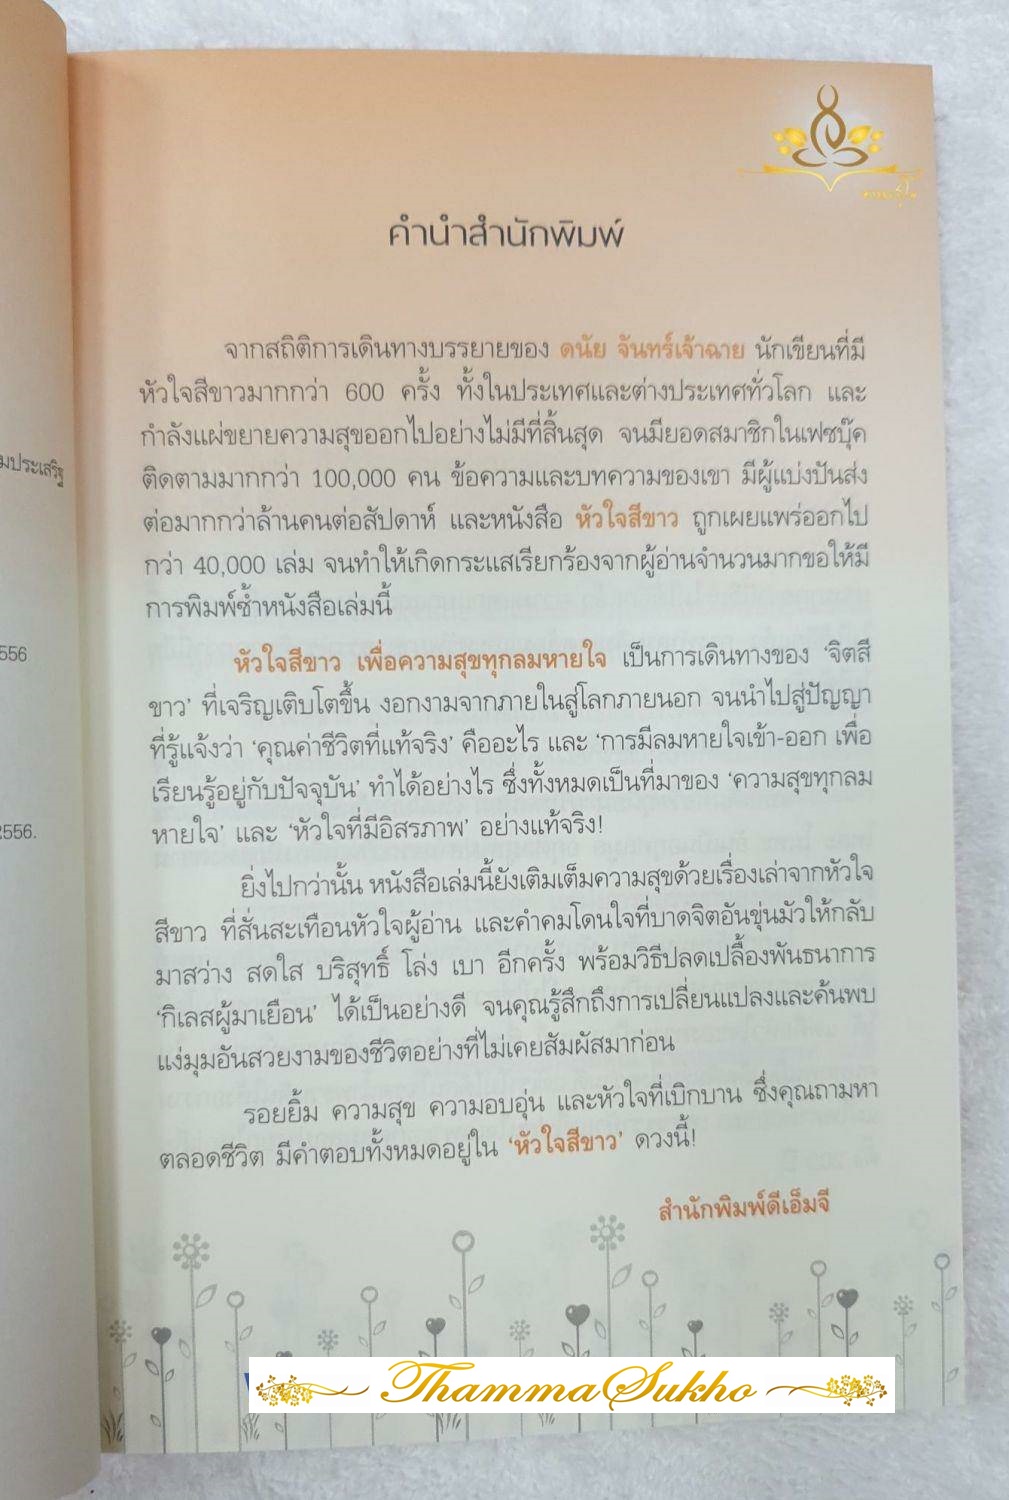 คำนำสำนักพิมพ์
จากสถิติการเดินทางบรรยายของ ดนัย จันทร์เจ้าฉาย นักเขียนที่มี
หัวใจสีขาวมากกว่า 600 ครั้ง ทั้งในประเทศและต่างประเทศทั่วโลก และ
กำลังแผ่ขยายความสุขออกไปอย่างไม่มีที่สิ้นสุด จนมียอดสมาชิกในเฟซบุ๊ค
ติดตามมากกว่า 100,000 คน ข้อความและบทความของเขา มีผู้แบ่งปันส่ง
ต่อมากกว่าล้านคนต่อสัปดาห์ และหนังสือ หัวใจสีขาว ถูกเผยแพร่ออกไป
กว่า 40,000 เล่ม จนทำให้เกิดกระแสเรียกร้องจากผู้อ่านจำนวนมากขอให้มี
การพิมพ์ซ้ำหนังสือเล่มนี้
หัวใจสีขาว เพื่อความสุขทุกลมหายใจ เป็นการเดินทางของ ‘จิตสี
ขาว’ ที่เจริญเติบโตขึ้น งอกงามจากภายในสู่โลกภายนอก จนนำไปสู่ปัญญา
ที่รู้แจ้งว่า ‘คุณค่าชีวิตที่แท้จริง’ คืออะไร และ ‘การมีลมหายใจเข้า-ออก เพื่อ
เรียนรู้อยู่กับปัจจุบัน’ ทำได้อย่างไร ซึ่งทั้งหมดเป็นที่มาของ ‘ความสุขทุกลม
หายใจ’ และ ‘หัวใจที่มีอิสรภาพ’ อย่างแท้จริง!
ยิ่งไปกว่านั้น หนังสือเล่มนี้ยังเติมเต็มความสุขด้วยเรื่องเล่าจากหัวใจ
สีขาว ที่สั่นสะเทือนหัวใจผู้อ่าน และคำคมโดนใจที่บาดจิตอันขุ่นมัวให้กลับ
มาสว่าง สดใส บริสุทธิ์ โล่ง เบา อีกครั้ง พร้อมวิธีปลดเปลื้องพันธนาการ
‘กิเลสผู้มาเยือน’ ได้เป็นอย่างดี จนคุณรู้สึกถึงการเปลี่ยนแปลงและค้นพบ
แง่มุมอันสวยงามของชีวิตอย่างที่ไม่เคยสัมผัสมาก่อน
รอยยิ้ม ความสุข ความอบอุ่น และหัวใจที่เบิกบาน ซึ่งคุณถามหา
ตลอดชีวิต มีคำตอบทั้งหมดอยู่ใน ‘หัวใจสีขาว’ ดวงนี้!
สำนักพิมพ์ดีเอ็มจี
ThammaSukho